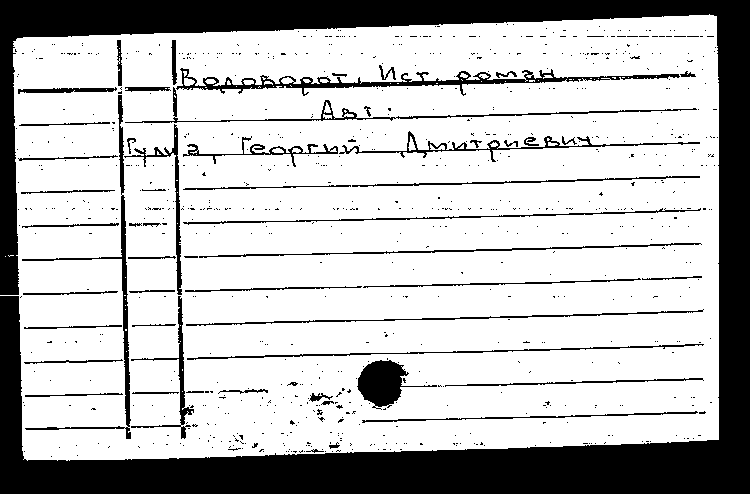 Водоворот. Ист. роман
Авт:
Гулиа, Георгий Дмитриевич